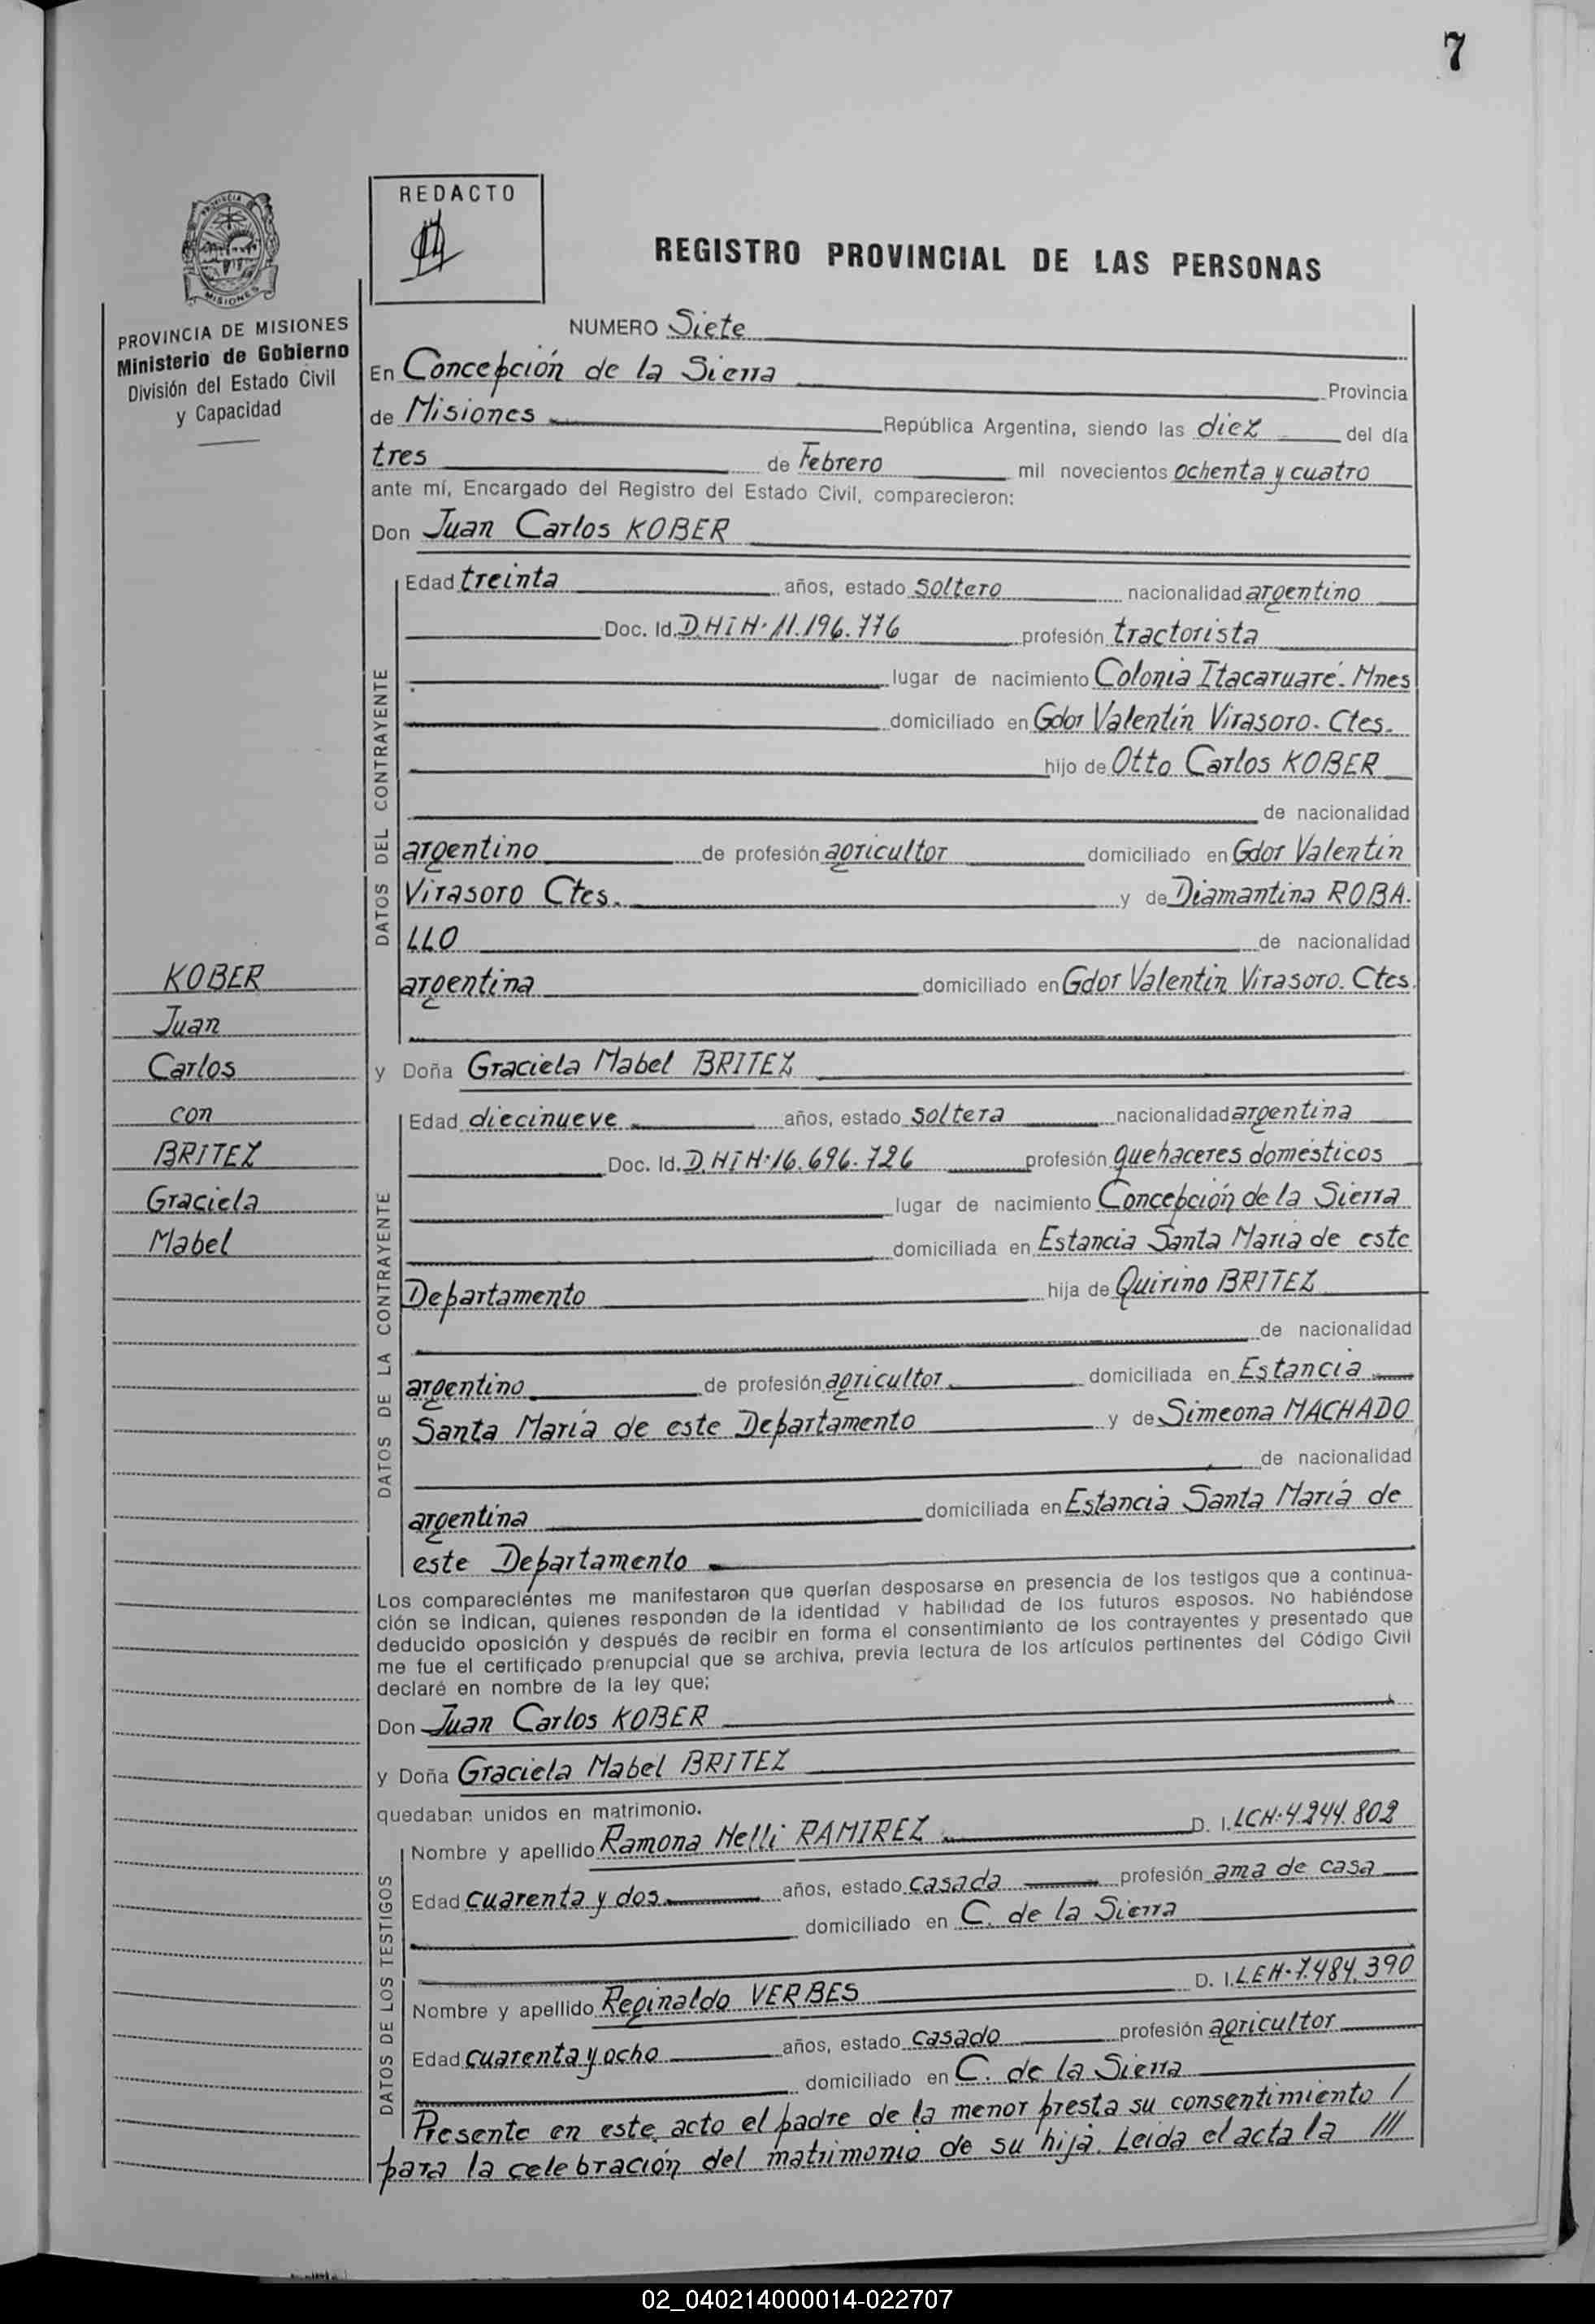 7
REDACTO
PROVINCIA DE MISIONES
Ministerio de Gobierno
División del Estado Civil
y Capacidad
REGISTRO PROVINCIAL DE LAS PERSONAS
NUMERO Siete
En Concepción de la Sierra Provincia
de Misiones República Argentina, siendo las diez del día
tres de Febrero mil novecientos ochenta y cuatro
ante mí, Encargado del Registro del Estado Civil, comparecieron:
Don Juan Carlos KOBER
DATOS DEL CONTRAYENTE
Edad treinta años, estado soltero nacionalidad argentino
Doc. Id. D.N.I.N. 11.196.776 profesión tractorista
lugar de nacimiento Colonia Itacaruaré. Mnes
domiciliado en Gdor Valentín Virasoro. Ctes.
hijo de Otto Carlos KOBER
de nacionalidad
argentino de profesión agricultor domiciliado en Gdor Valentín
Virasoro Ctes. y de Diamantina ROBA.
LLO de nacionalidad
argentina domiciliado en Gdor Valentín Virasoro. Ctes.
KOBER
Juan
Carlos
con
BRITEZ
Graciela
Mabel
y Doña Graciela Mabel BRITEZ
DATOS DE LA CONTRAYENTE
Edad diecinueve años, estado soltera nacionalidad argentina
Doc. Id. D.N.I.N. 16.696.726 profesión quehaceres domésticos
lugar de nacimiento Concepción de la Sierra
domiciliada en Estancia Santa María de este
Departamento hija de Quirino BRITEZ
de nacionalidad
argentino de profesión agricultor domiciliada en Estancia
Santa María de este Departamento y de Simeona MACHADO
de nacionalidad
argentina domiciliada en Estancia Santa María de
este Departamento
Los comparecientes me manifestaron que querían desposarse en presencia de los testigos que a continua-
ción se indican, quienes responden de la identidad y habilidad de los futuros esposos. No habiéndose
deducido oposición y después de recibir en forma el consentimiento de los contrayentes y presentado que
me fue el certificado prenupcial que se archiva, previa lectura de los artículos pertinentes del Código Civil
declaré en nombre de la ley que;
Don Juan Carlos KOBER
y Doña Graciela Mabel BRITEZ
quedaban unidos en matrimonio.
DATOS DE LOS TESTIGOS
Nombre y apellido Ramona Nelli RAMIREZ D. I. LCN. 4.244.802
Edad cuarenta y dos años, estado casada profesión ama de casa
domiciliado en C. de la Sierra
Nombre y apellido Reginaldo VERBES D. I. LEN. 7.484.390
Edad cuarenta y ocho años, estado casado profesión agricultor
domiciliado en C. de la Sierra
Presente en este acto el padre de la menor presta su consentimiento /
para la celebración del matrimonio de su hija. Leida el acta la ///
02_040214000014-022707